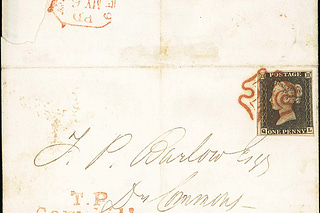 PD
MY 6
POSTAGE
ONE PENNY
J. P. Barlow Esqr
T.P
Drs Commons